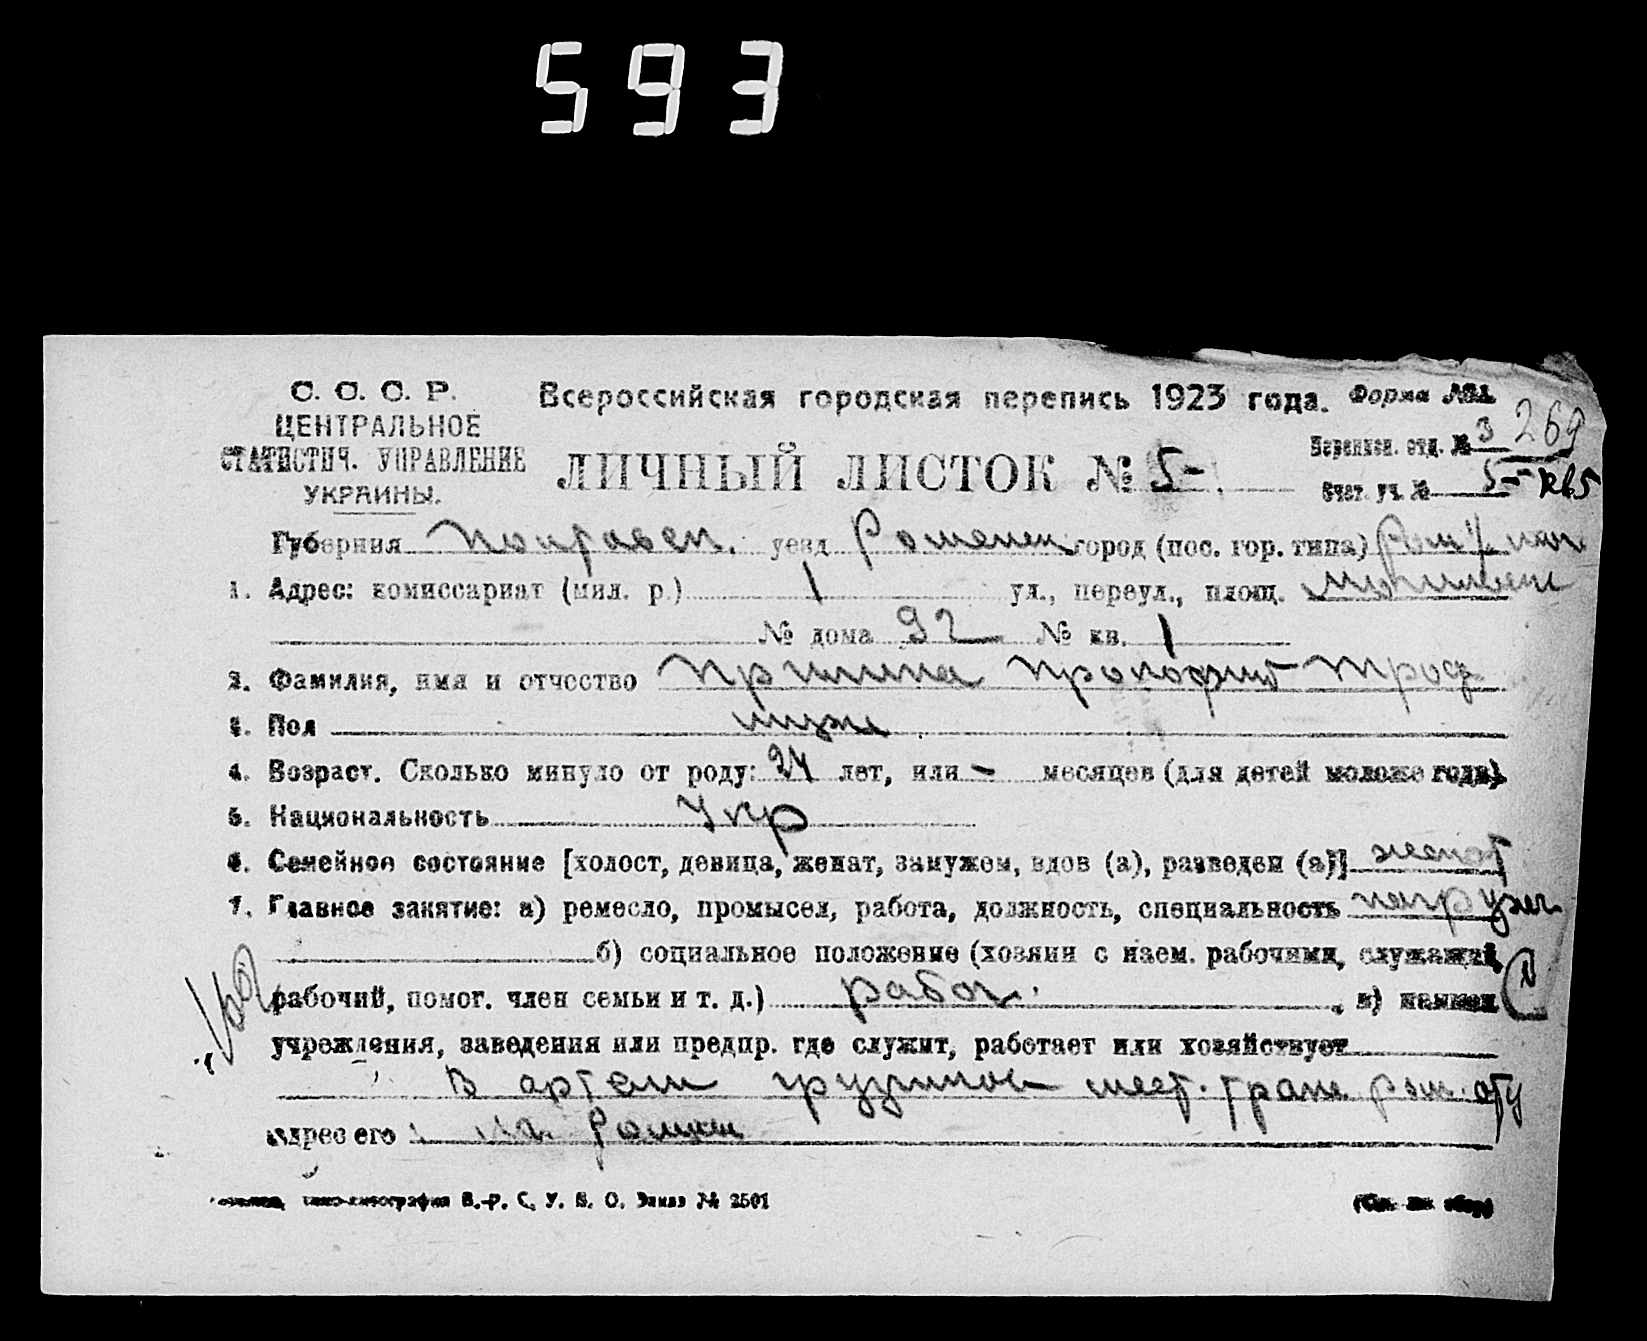 593
С. С. С. Р.
ЦЕНТРАЛЬНОЕ
СТАТИСТИЧ. УПРАВЛЕНИЕ
УКРАИНЫ.
Всероссийская городская перепись 1923 года. Форма №1
ЛИЧНЫЙ ЛИСТОК № 5-
Переписн. отд. № 3 269
Счет. уч. № 5-
Губерния Полтавск. уезд Роменск город (пос. гор. типа)
1. Адрес: комиссариат (мил. р.) 1 ул., переул., площ.
№ дома 92 № кв. 1
2. Фамилия, имя и отчество Прокофий
3. Пол муж
4. Возраст. Сколько минуло от роду: 24 лет, или - месяцев (для детей моложе года)
5. Национальность Укр
6. Семейное состояние [холост, девица, женат, замужем, вдов (а), разведен (а)] женат
7. Главное занятие: а) ремесло, промысел, работа, должность, специальность
б) социальное положение (хозяин с наем. рабочими, служащий,
рабочий, помог. член семьи и т. д.) рабоч. , в) наимен.
учреждения, заведения или предпр. где служит, работает или хозяйствует
В артели грузчиков мест. тран.
адрес его Ромны
В.-Р. С. У. В. О. Заказ № 2501